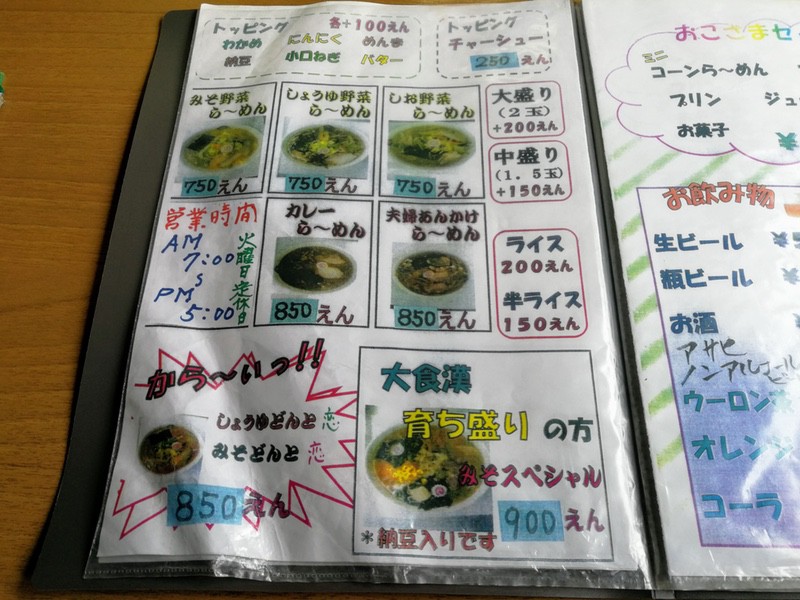 トッピング 各+100えん
わかめ にんにく めんま
納豆 小口ねぎ バター
トッピング
チャーシュー
250えん
みそ野菜
ら〜めん
750えん
しょうゆ野菜
ら〜めん
750えん
しお野菜
ら〜めん
750えん
大盛り
(2玉)
+200えん
中盛り
(1.5玉)
+150えん
営業時間
AM
7:00
S
PM
5:00
火曜日定休日
カレー
ら〜めん
850えん
夫婦あんかけ
ら〜めん
850えん
ライス
200えん
半ライス
150えん
から〜いっ!!
しょうゆどんと恋
みそどんと恋
850えん
大食漢
育ち盛りの方
みそスペシャル
900えん
*納豆入りです
おこさまセ
ミニ
コーンら〜めん
プリン ジュ
お菓子
¥
お飲み物
生ビール ¥
瓶ビール ¥
お酒 ¥
アサヒ
ノンアルコール
ウーロン茶
オレンジ
コーラ